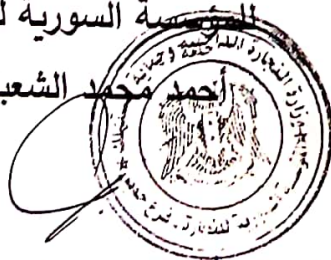 للمؤسسة السورية ل
أحمد محمد الشعب
وزارة التجارة الداخلية و حماية
السورية للتجارة